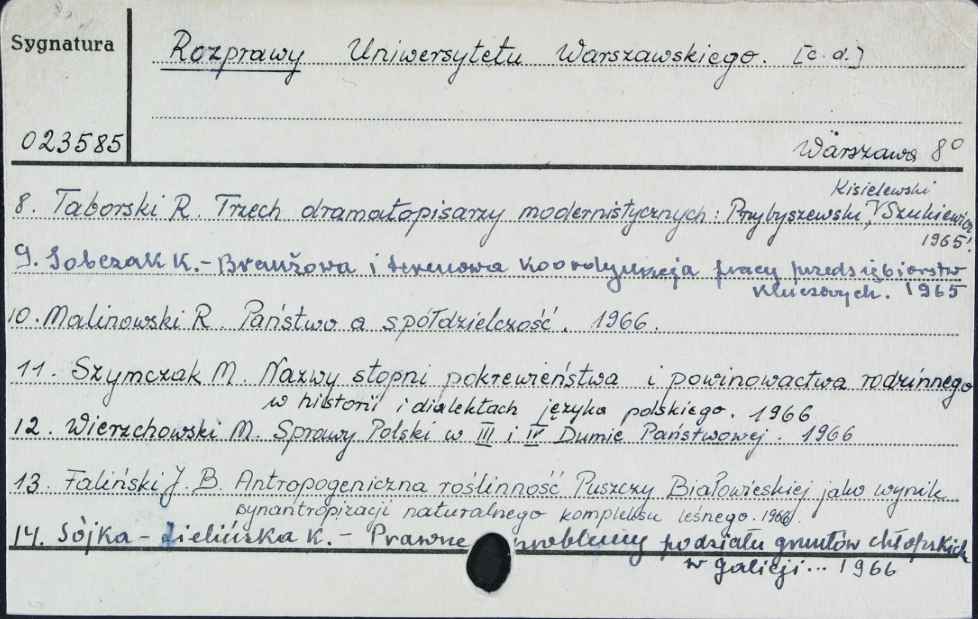 Sygnatura
Rozprawy Uniwersytetu Warszawskiego. [c.d.]
023585
Warszawa 8°
Kisielewski
8. Taborski R. Trzech dramatopisarzy modernistycznych: Przybyszewski, V Szukiewicz
1965.
9. Sobczak K. - Branżowa i terenowa koordynacja pracy przedsiębiorstw
kluczowych. 1965
10. Malinowski R. Państwo a spółdzielczość. 1966.
11. Szymczak M. Nazwy stopni pokrewieństwa i powinowactwa rodzinnego
w historii i dialektach języka polskiego. 1966
12. Wierzchowski M. Sprawy Polski w III i IV Dumie Państwowej. 1966
13. Faliński J. B. Antropogeniczna roślinność Puszczy Białowieskiej jako wynik
synantropizacji naturalnego kompleksu leśnego. 1966.
14. Sójka-Zielińska K. - Prawne problemy podziału gruntów chłopskich
w Galicji... 1966